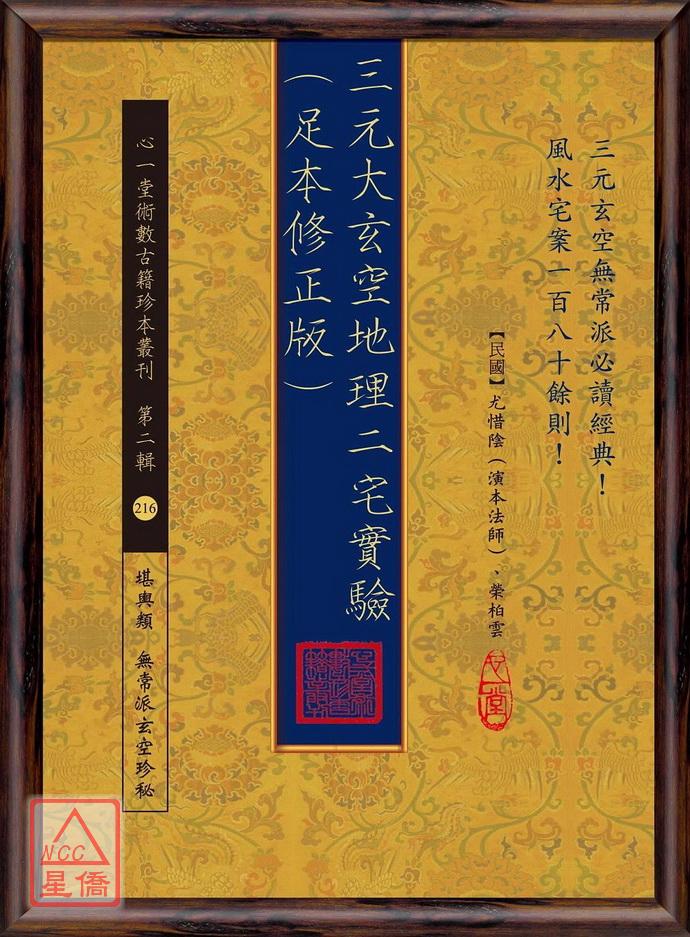 三元玄空無常派必讀經典！
風水宅案一百八十餘則！
【民國】尤惜陰（演本法師）、榮柏雲
心一堂
三元大玄空地理二宅實驗
（足本修正版）
心一堂術數古籍珍本叢刊 第二輯 216
堪輿類 無常派玄空珍秘
NCC
星僑